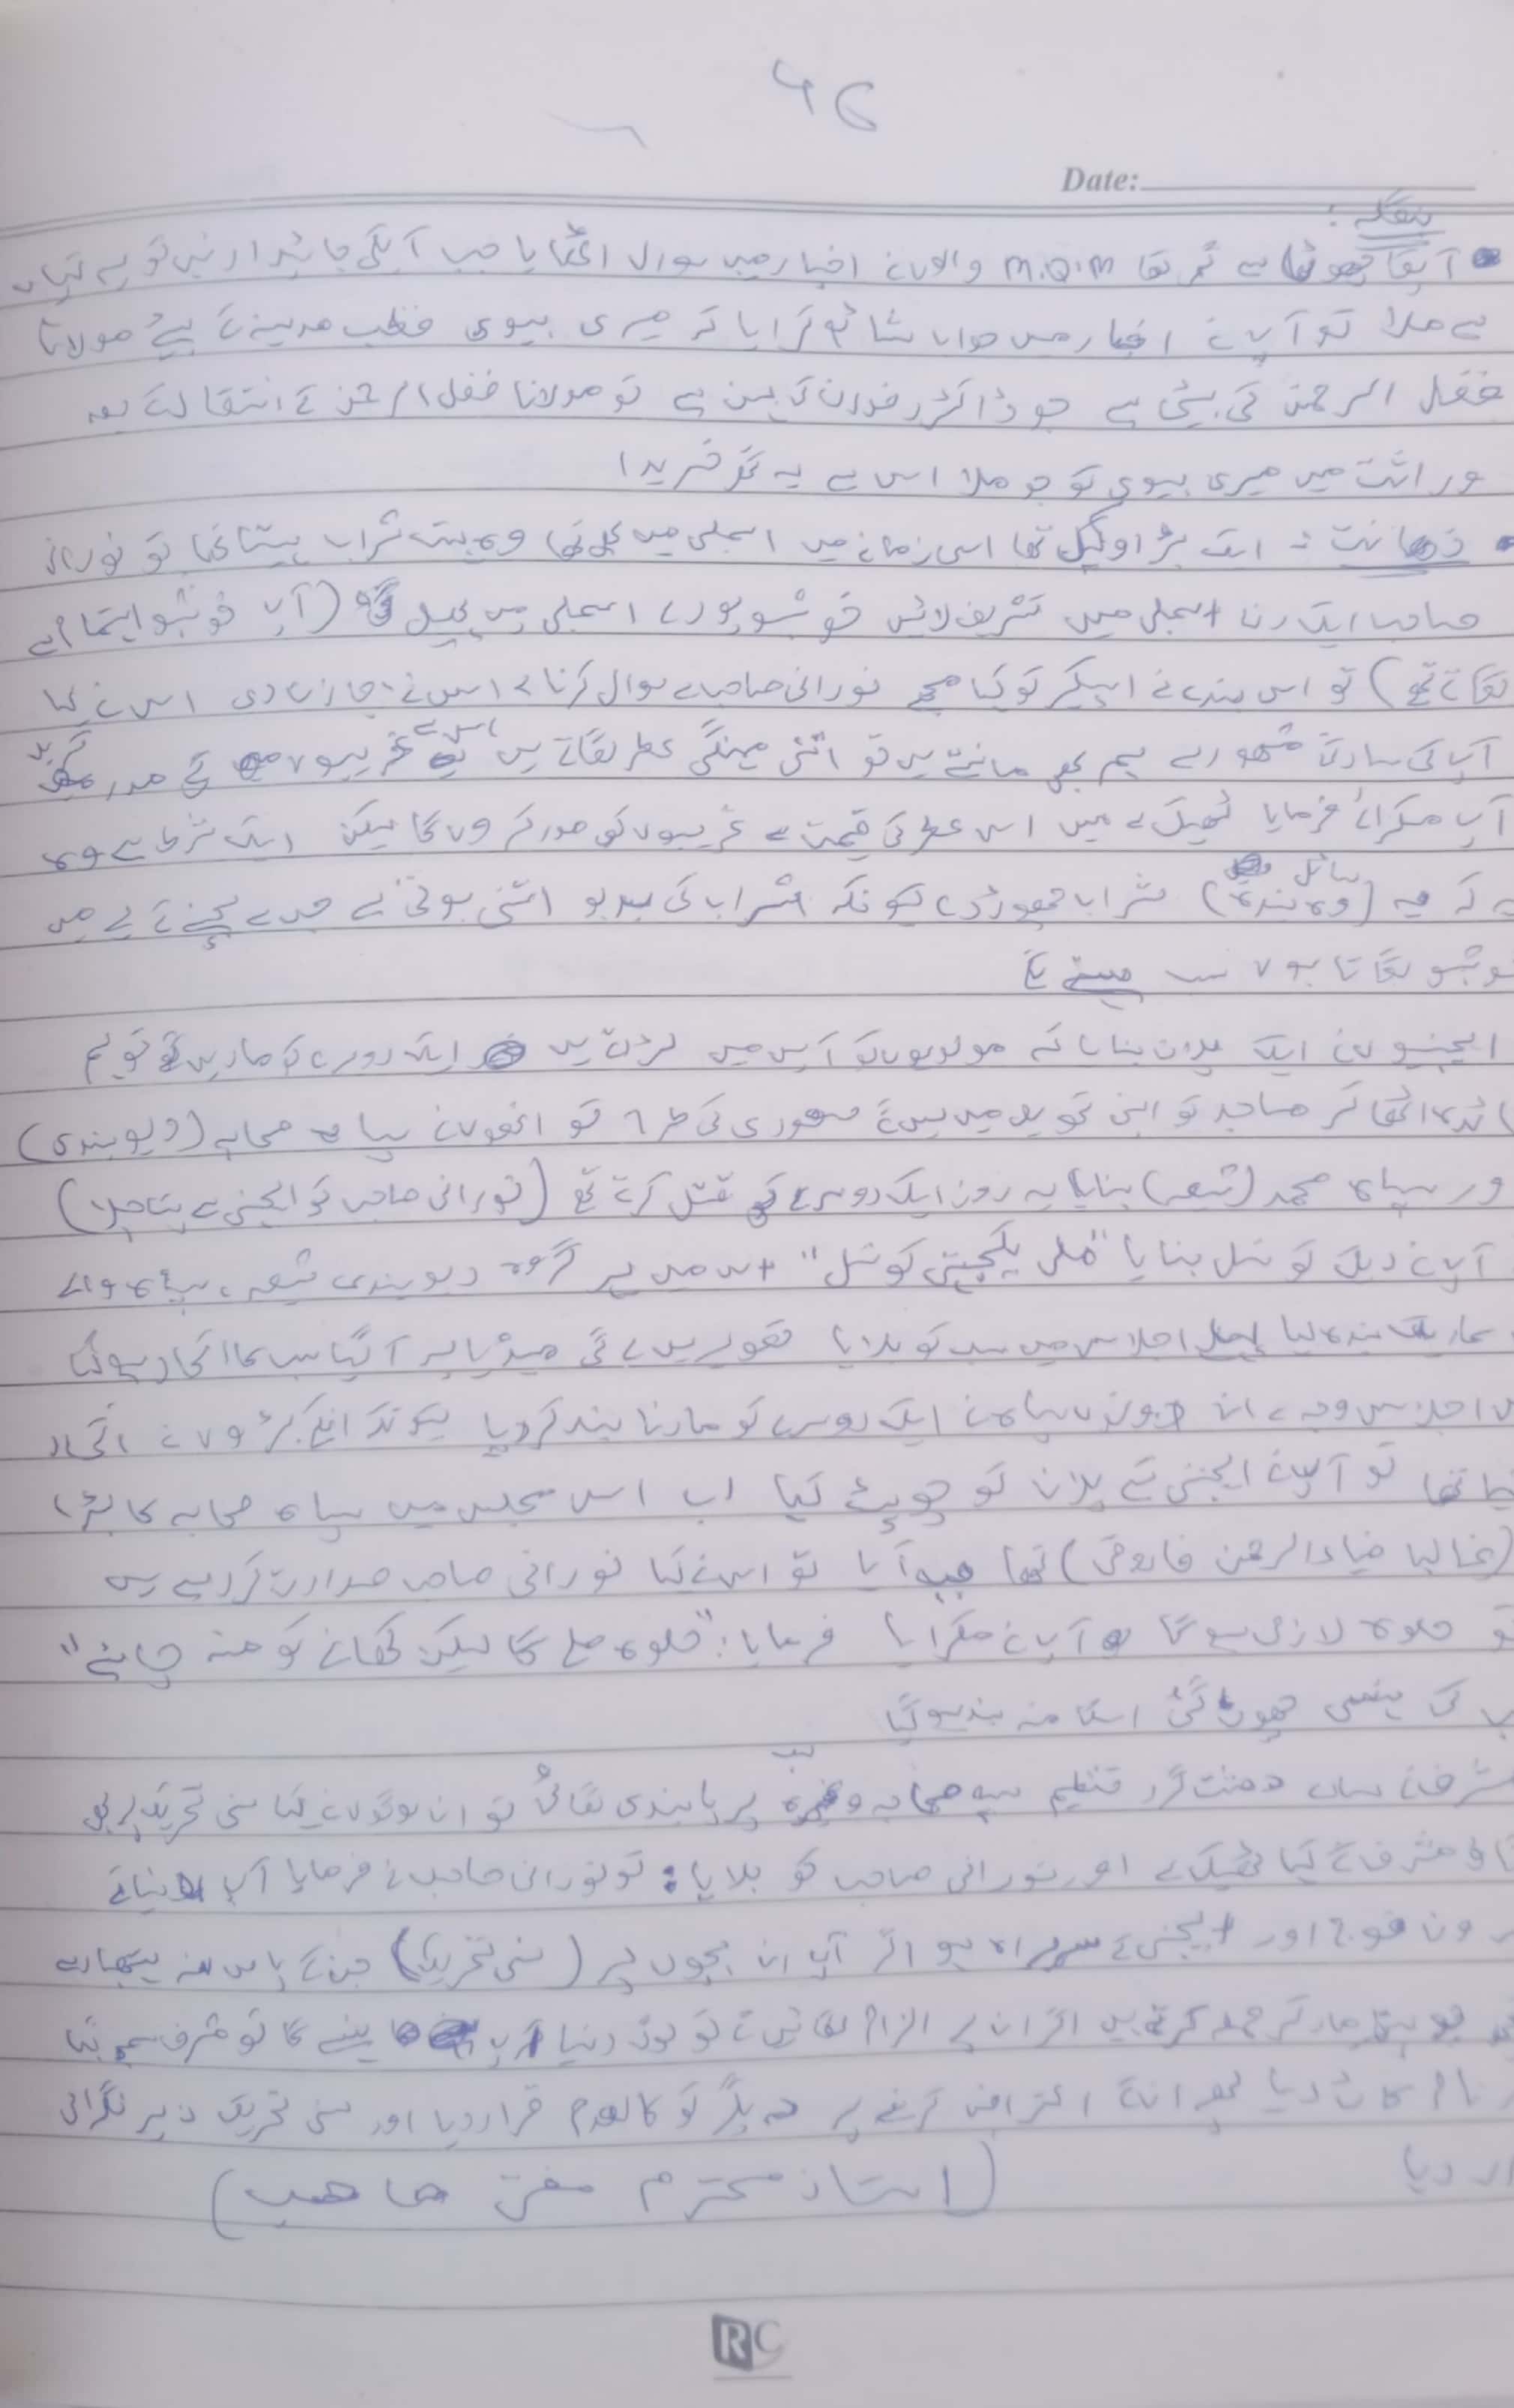 Date:
بنگلہ :
آپکا چھوٹا سے گھر تھا M.Q.M والوں نے اخبار میں سوال اٹھایا جب آپکی جائیداد نہیں تو یہ کہاں
سے ملا تو آپ نے اخبار میں جواب شائع کرایا کہ میری بیوی قطب مدینہ کے بیٹے مولانا
فضل الرحمن کی بیٹی ہے جو ڈاکٹر رضوان کی بہن ہے تو مولانا فضل الرحمن کے انتقال کے بعد
وراثت میں میری بیوی کو جو ملا اس سے یہ گھر خریدا
ذھانت : ایک بڑا وکیل تھا اسی زمانے میں اسمبلی میں بھی تھا وہ بہت شراب پیتا تھا تو نورانی
صاحب ایک دن اسمبلی میں تشریف لائیں خوشبو پورے اسمبلی میں پھیل گئی (آپ خوشبو اہتمام سے
لگاتے تھے) تو اس بندے نے اسپیکر کو کہا مجھے نورانی صاحب سے سوال کرنا ہے اس نے اجازت دی اس نے کہا
آپ کی سادگی مشہور ہے ہم بھی مانتے ہیں تو اتنی مہنگی عطر لگاتے ہیں اس سے غریبوں کی مدد کریں
آپ مسکرائے فرمایا ٹھیک ہے میں اس عطر کی قیمت سے غریبوں کو مدد کروں گا لیکن ایک شرط ہے وہ
یہ کہ یہ (وہ بندہ) سائل شراب چھوڑ دے کیونکہ شراب کی بدبو اتنی ہوتی ہے جس سے بچنے کے لیے میں
خوشبو لگاتا ہوں سب ہنسنے لگے
ایجنسیوں نے ایک پلان بنایا کہ مولویوں کو آپس میں لڑاتے ہیں ایک دوسرے کو ماریں گے تو ہم
فائدہ اٹھا کر مساجد کو اپنی تحویل میں لیں گے سعودی کی طرح تو انھوں نے سپاہ صحابہ (دیوبندی)
اور سپاہ محمد (شیعہ) بنایا یہ روز ایک دوسرے کو قتل کرتے تھے (نورانی صاحب کو ایجنسی سے پتا چلا)
آپ نے ایک کونسل بنایا "ملی یکجہتی کونسل" اس میں ہر گروہ دیوبندی شیعہ، سپاہ والے
ایک بندہ لیا پہلے اجلاس میں سب کو بلایا تصویریں لے گی میڈیا پر آگیا سب کا اتحاد ہوگیا
اس اجلاس وجہ سے ان دونوں سپاہ نے ایک دوسرے کو مارنا بند کردیا کیونکہ انکے بڑوں نے اتحاد
کیا تھا تو آپ نے ایجنسی کے پلان کو چوپٹ کیا اب اس مجلس میں سپاہ صحابہ کا بڑا
(غالبا ضیاء الرحمن فاروقی) تھا جب آیا تو اس نے کہا نورانی صاحب صدارت کر رہے ہیں
تو حلوہ لازمی ہوگا آپ نے مسکرایا فرمایا : "حلوہ ملے گا لیکن کھانے کو منہ چاہئے"
سب کی ہنسی چھوٹ گئی اسکا منہ بند ہوگیا
مشرف نے جہاں دھشت گرد تنظیم سپہ صحابہ وغیرہ پر پابندی لگائی تو ان لوگوں نے کہا سنی تحریک پر بھی
لگاؤ مشرف نے کہا ٹھیک ہے اور نورانی صاحب کو بلایا : تو نورانی صاحب نے فرمایا آپ
فوج اور ایجنسی کے سربراہ ہو اگر آپ ان بچوں پر (سنی تحریک) جن کے پاس نہ ہتھیار ہے
جو پتھر مار کر حملہ کرتے ہیں اگر ان پر الزام لگائیں گے تو لوگ دنیا آپ پر ہنسے گا تو مشرف سمجھ گیا
نام کاٹ دیا پھر انکے اعتراض کرنے پر دیگر کو کالعدم قرار دیا اور سنی تحریک زیر نگرانی
قرار دیا
(استاذ محترم مفتی صاحب)
RC